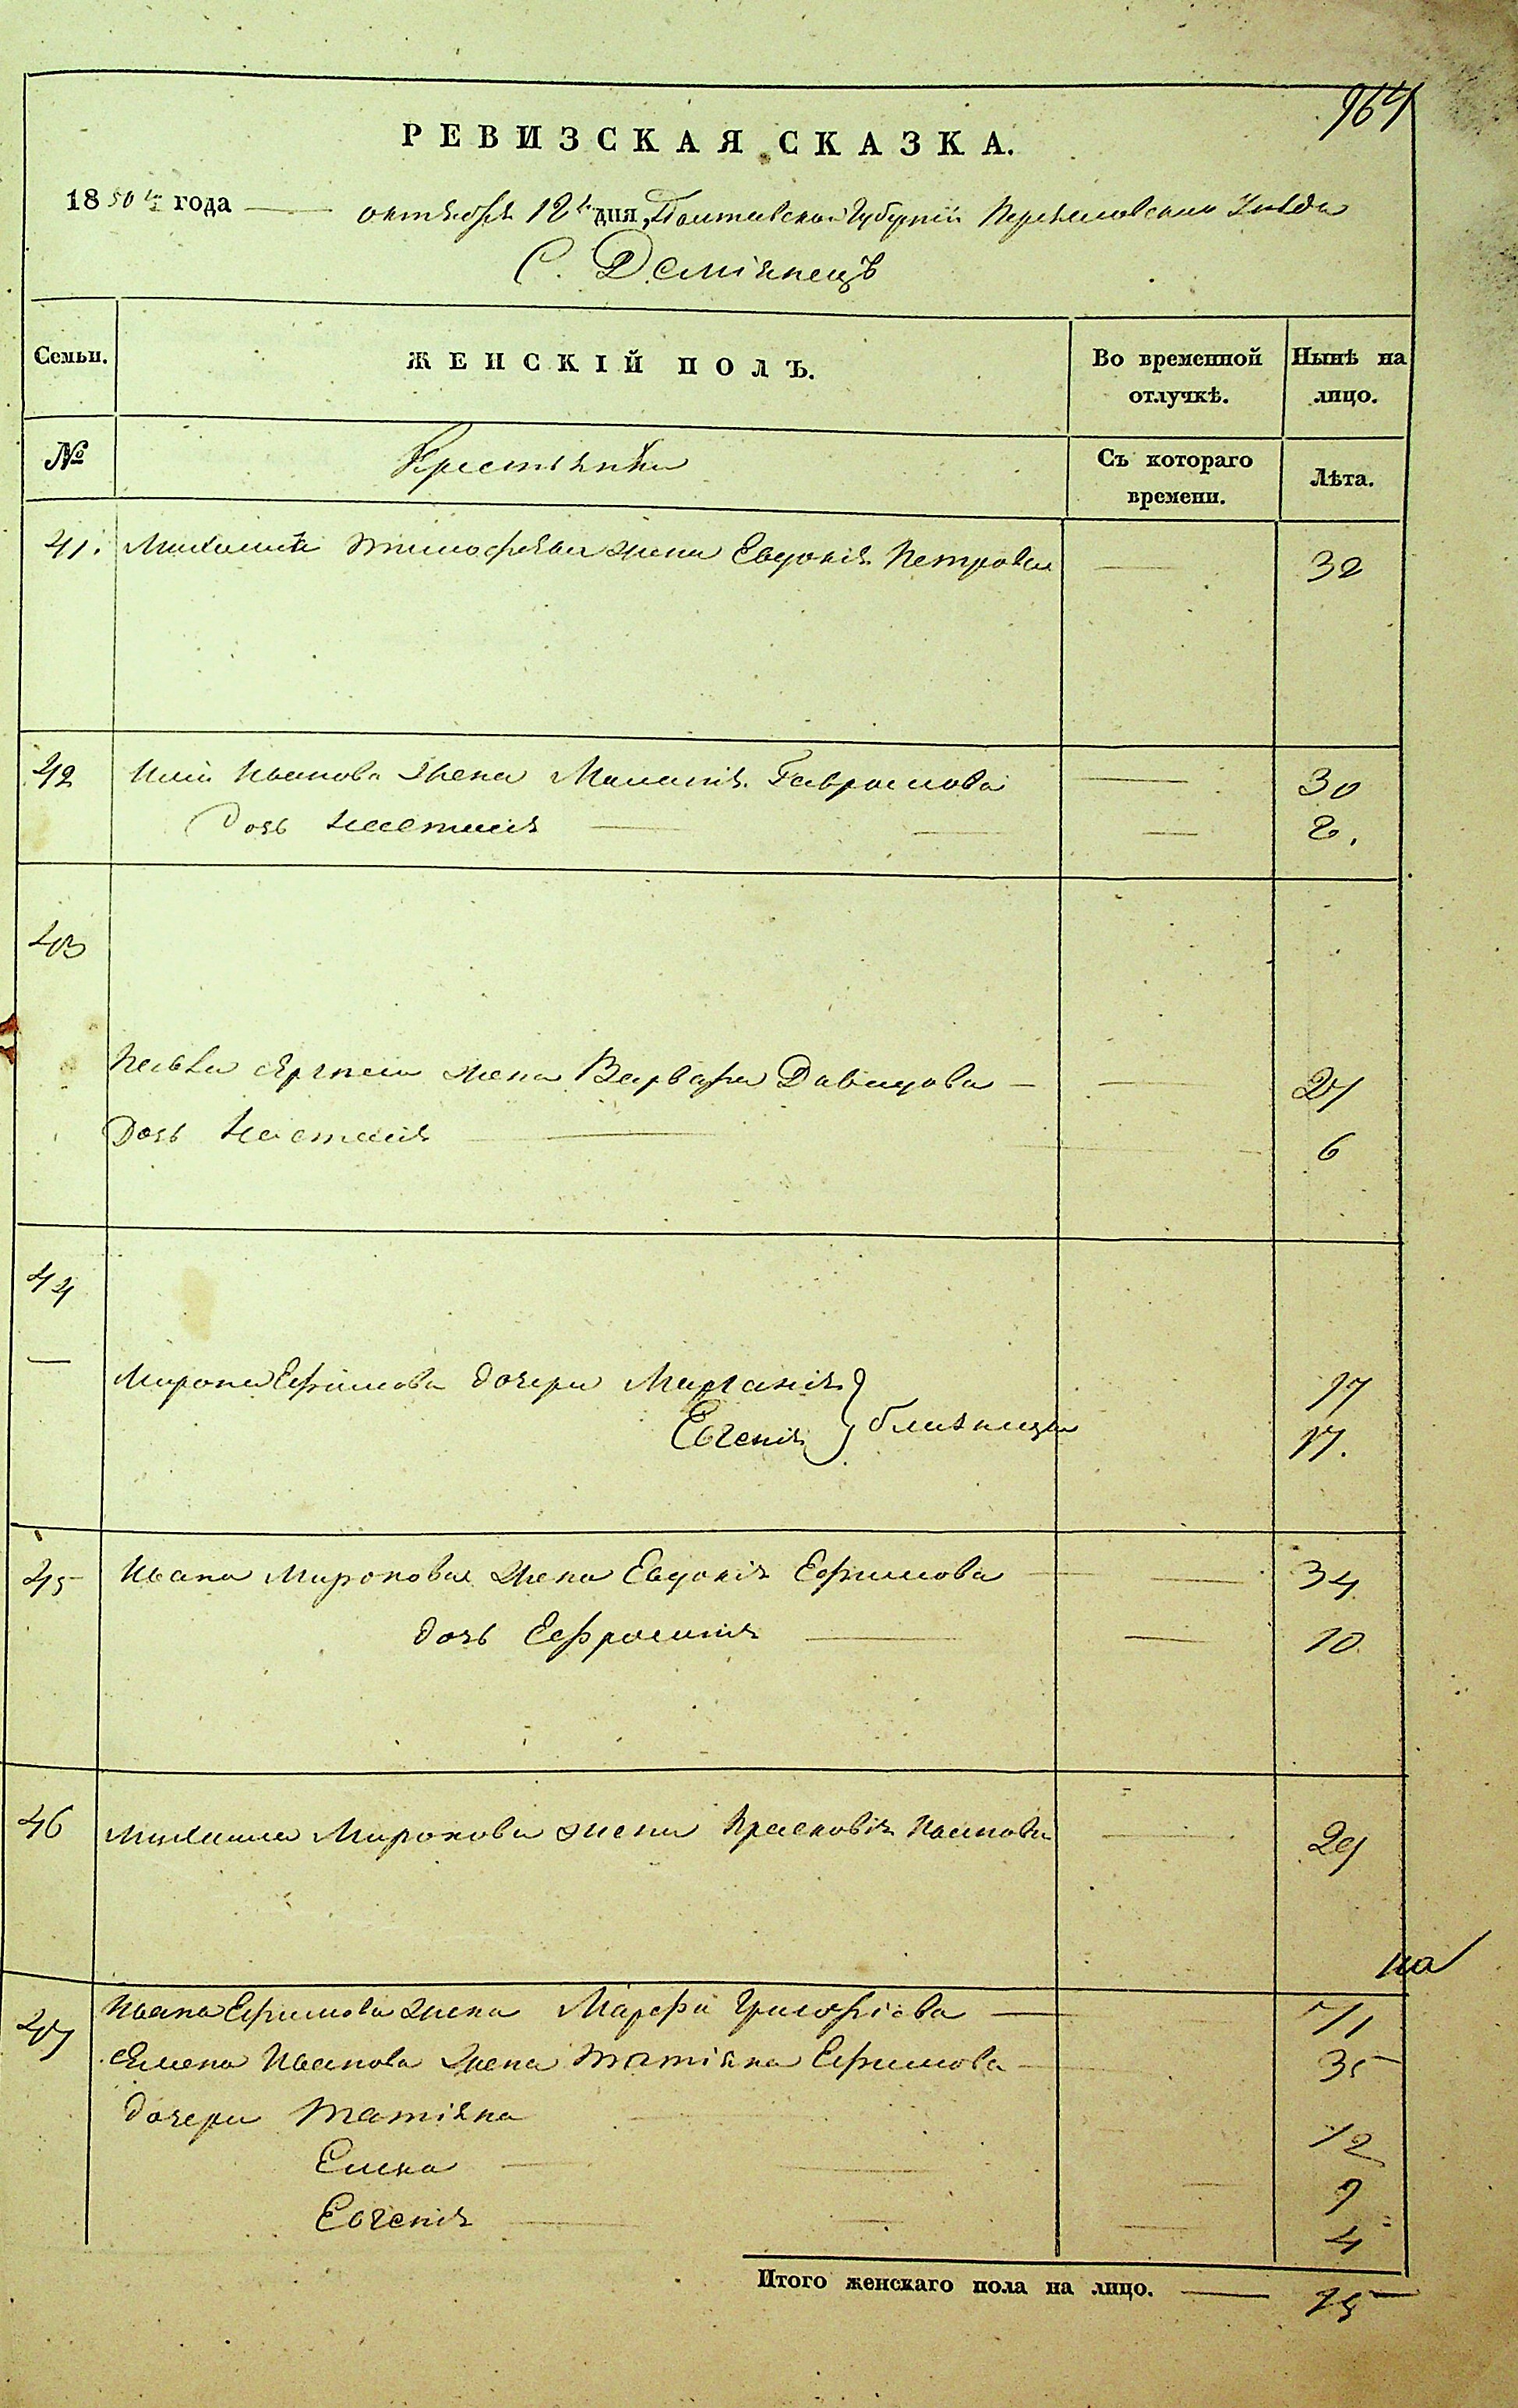 964
РЕВИЗСКАЯ СКАЗКА.
1850 го года — октября 12 го дня, Полтавской Губерніи Переяславскаго Уезда
С. Деміянецъ
Семьи. ЖЕНСКІЙ ПОЛЪ. Во временной отлучкѣ. Нынѣ на лицо.
№ Крестьянки Съ котораго времени. Лѣта.
41. Михаила Тимофѣева жена Евдокія Петрова — 32
42 Ивана Жена Маланія Гаврилова — 30
Дочь Настасія — 2.
43
жена Варвара Давидова — 27
Дочь Настасія — 6
44
— Мирона Ефимова дочери 17
Евгенія } близнецы 17.
45 Ивана Миронова Жена Евдокія Ефимова — 34
дочь Ефросинія — 10
46 Михаила Миронова жена Прасковія Иванова — 29
на
47 Ивана Ефимова Жена Марфа Григоріева — 71
Семена Иванова Жена Татіяна Ефимова — 35
дочери Татіяна 12
Елена — 9
Евгенія — 4
Итого женскаго пола на лицо. — 15